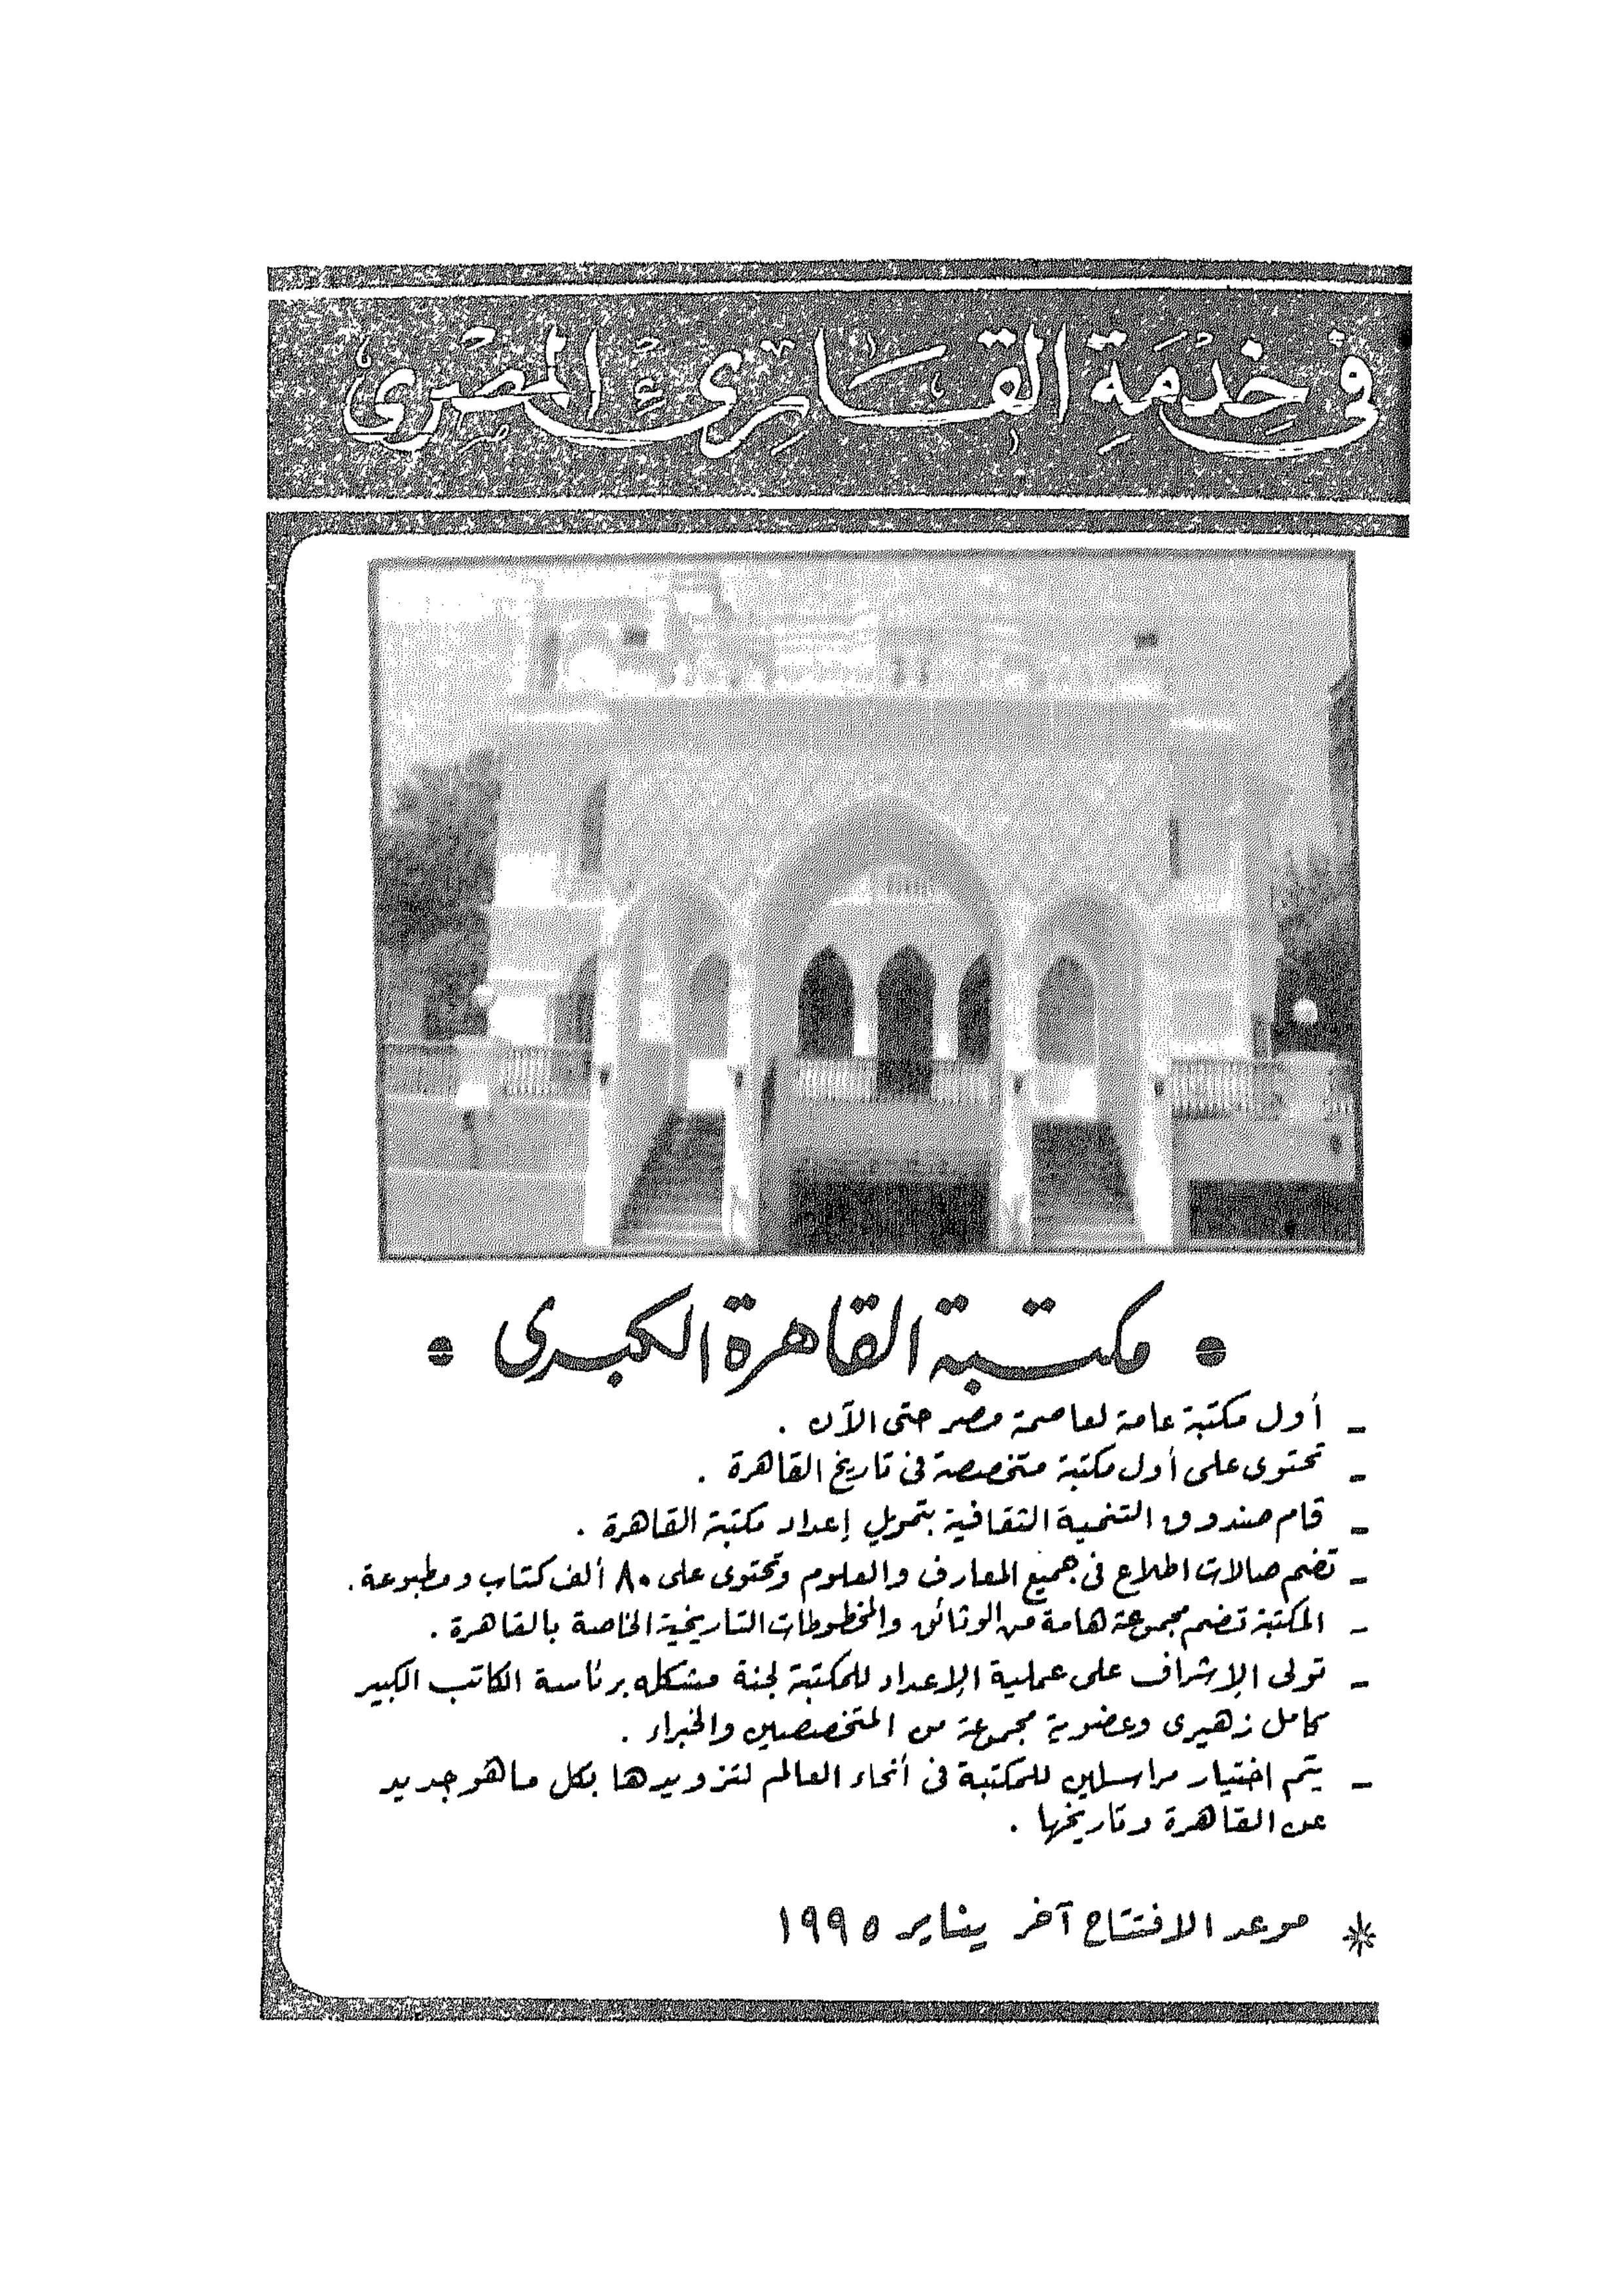 في خِدْمَةِ القَارِئِ المصْرِى
• مكتبة القاهرة الكبرى •
- أول مكتبة عامة لعاصمة مصر حتى الآن .
- تحتوى على أول مكتبة متخصصة فى تاريخ القاهرة .
- قام صندوق التنمية الثقافية بتمويل إعداد مكتبة القاهرة .
- تضم صالات اطلاع فى جميع المعارف والعلوم وتحتوى على ٨٠ ألف كتاب ومطبوعة .
- المكتبة تضم مجموعة هامة من الوثائق والمخطوطات التاريخية الخاصة بالقاهرة .
- تولى الإشراف على عملية الإعداد للمكتبة لجنة مشكله برئاسة الكاتب الكبير
كامل زهيرى وعضوية مجموعة من المتخصصين والخبراء .
- يتم اختيار مراسلين للمكتبة فى أنحاء العالم لتزويدها بكل ما هو جديد
عن القاهرة وتاريخها .
* موعد الافتتاح آخر يناير ١٩٩٥